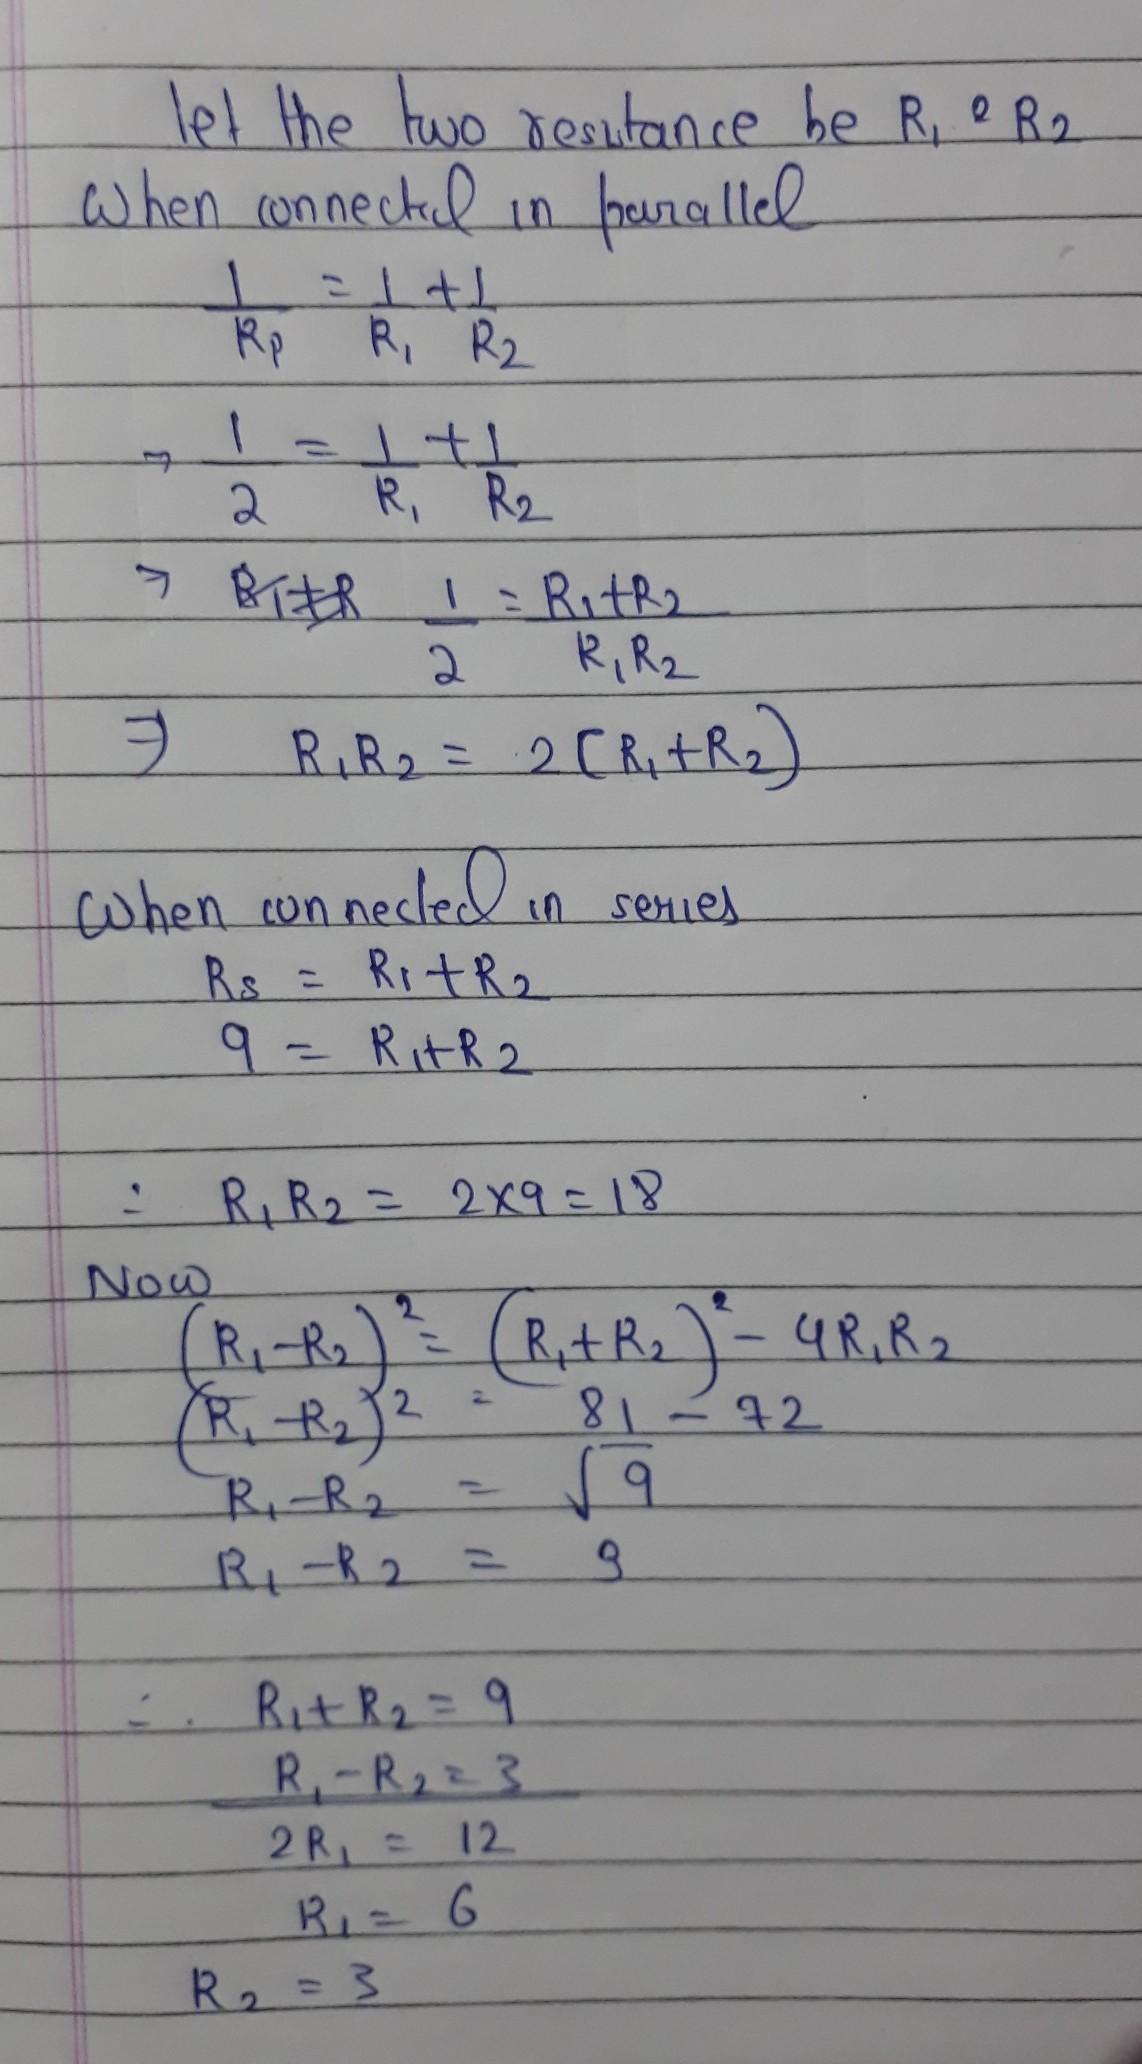 let the two resistance be R₁ & R₂
When connected in parallel
1/Rp = 1/R₁ + 1/R₂
⇒ 1/2 = 1/R₁ + 1/R₂
⇒ 1/2 = R₁+R₂/R₁R₂
⇒ R₁R₂ = 2(R₁+R₂)
When connected in series
Rs = R₁+R₂
9 = R₁+R₂
∴ R₁R₂ = 2×9=18
Now
(R₁-R₂)² = (R₁+R₂)² - 4R₁R₂
(R₁-R₂)² = 81 - 72
R₁-R₂ = √9
R₁-R₂ = 9
∴ R₁+R₂ = 9
R₁-R₂ = 3
2R₁ = 12
R₁ = 6
R₂ = 3